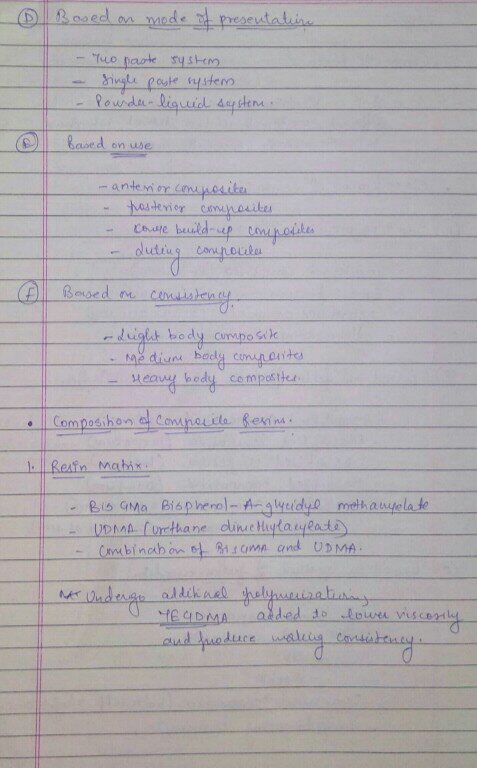 (D) Based on mode of presentation
- Two paste system
- Single paste system
- Powder-liquid system.
(E) Based on use
- anterior composites
- posterior composites
- Core build-up composites
- Luting composites
(F) Based on consistency.
- Light body composite
- Medium body composites
- Heavy body composites.
• Composition of Composite Resins.
1. Resin Matrix.
- BIS GMA Bisphenol-A-glycidyl methacrylate
- UDMA (urethane dimethylacylate)
- Combination of BISGMA and UDMA.
Undergo additional polymerization,
TEGDMA added to lower viscosity
and produce making consistency.